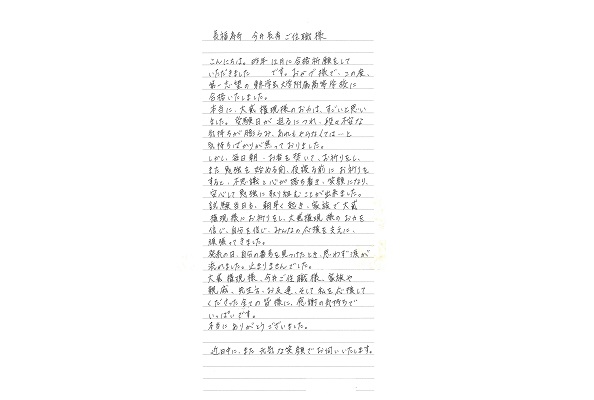 長福寿寺 今井長寿ご住職様
こんにちは。昨年12月に合格祈願をして
いただきました です。おかげ様で、この度、
第一志望の 大学附属高等学校に
合格いたしました。
本当に、大黄権現様のお力は、すごいと思い
ました。受験日が迫るにつれ、段々不安な
気持ちが膨らみ、あれもやらなくてはーと
気持ちばかりが焦っておりました。
しかし、毎日朝・お香を焚いて、お祈りをし、
また勉強を始める前、夜寝る前にお祈りを
すると、不思議と心が落ち着き、笑顔になり、
安心して勉強に取り組むことが出来ました。
試験当日も、朝早く起き、家族で大黄
権現様にお祈りをし、大黄権現様のお力を
信じ、自分を信じ、みんなの応援を支えに、
頑張ってきました。
発表の日、自分の番号を見つけたとき、思わず涙が
流れました。止まりませんでした。
大黄権現様、今井ご住職様、家族や
親戚、先生方、お友達、そして私を応援して
くださった全ての皆様に、感謝の気持ちで
いっぱいです。
本当にありがとうございました。
近日中に、また元気な笑顔でお伺いいたします。